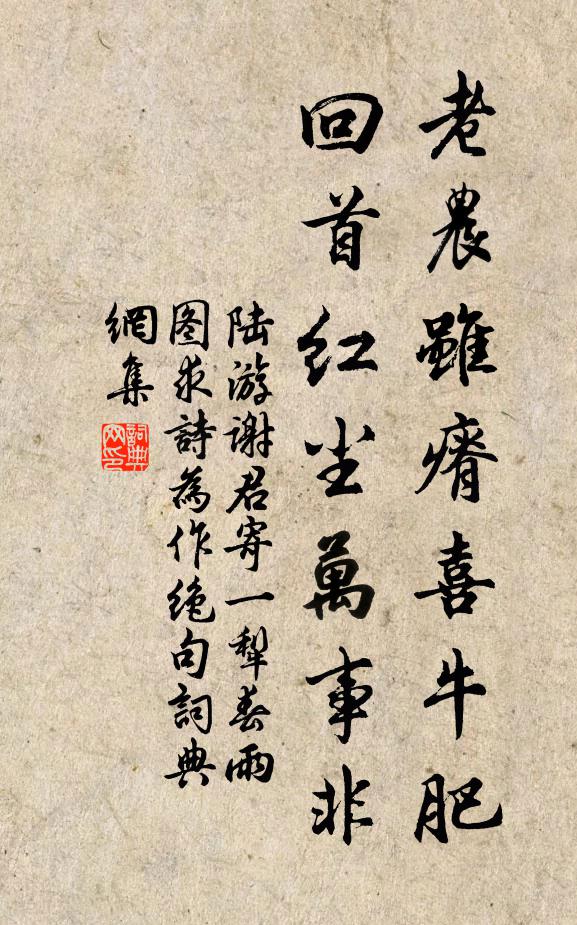 老農雖瘠喜牛肥
回首紅尘萬事非
陆游謝君寄一犁春雨
图求詩為作绝句詞典
網集
詞典网印